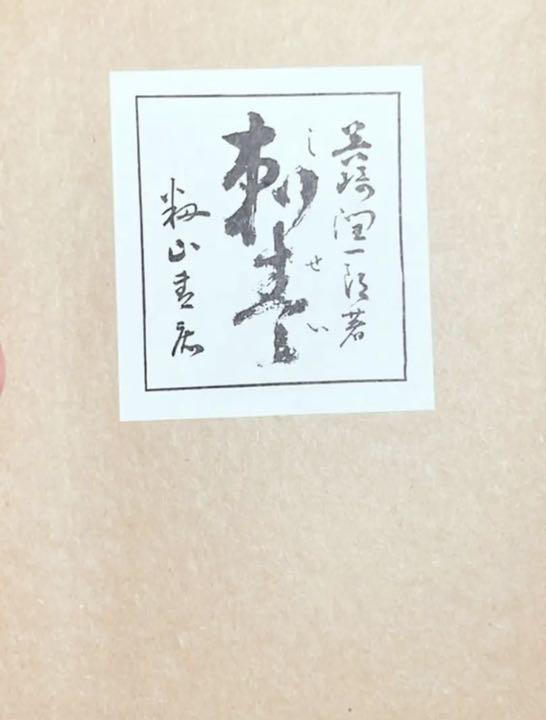 谷崎潤一郎著
刺青
しせい
籾山書店